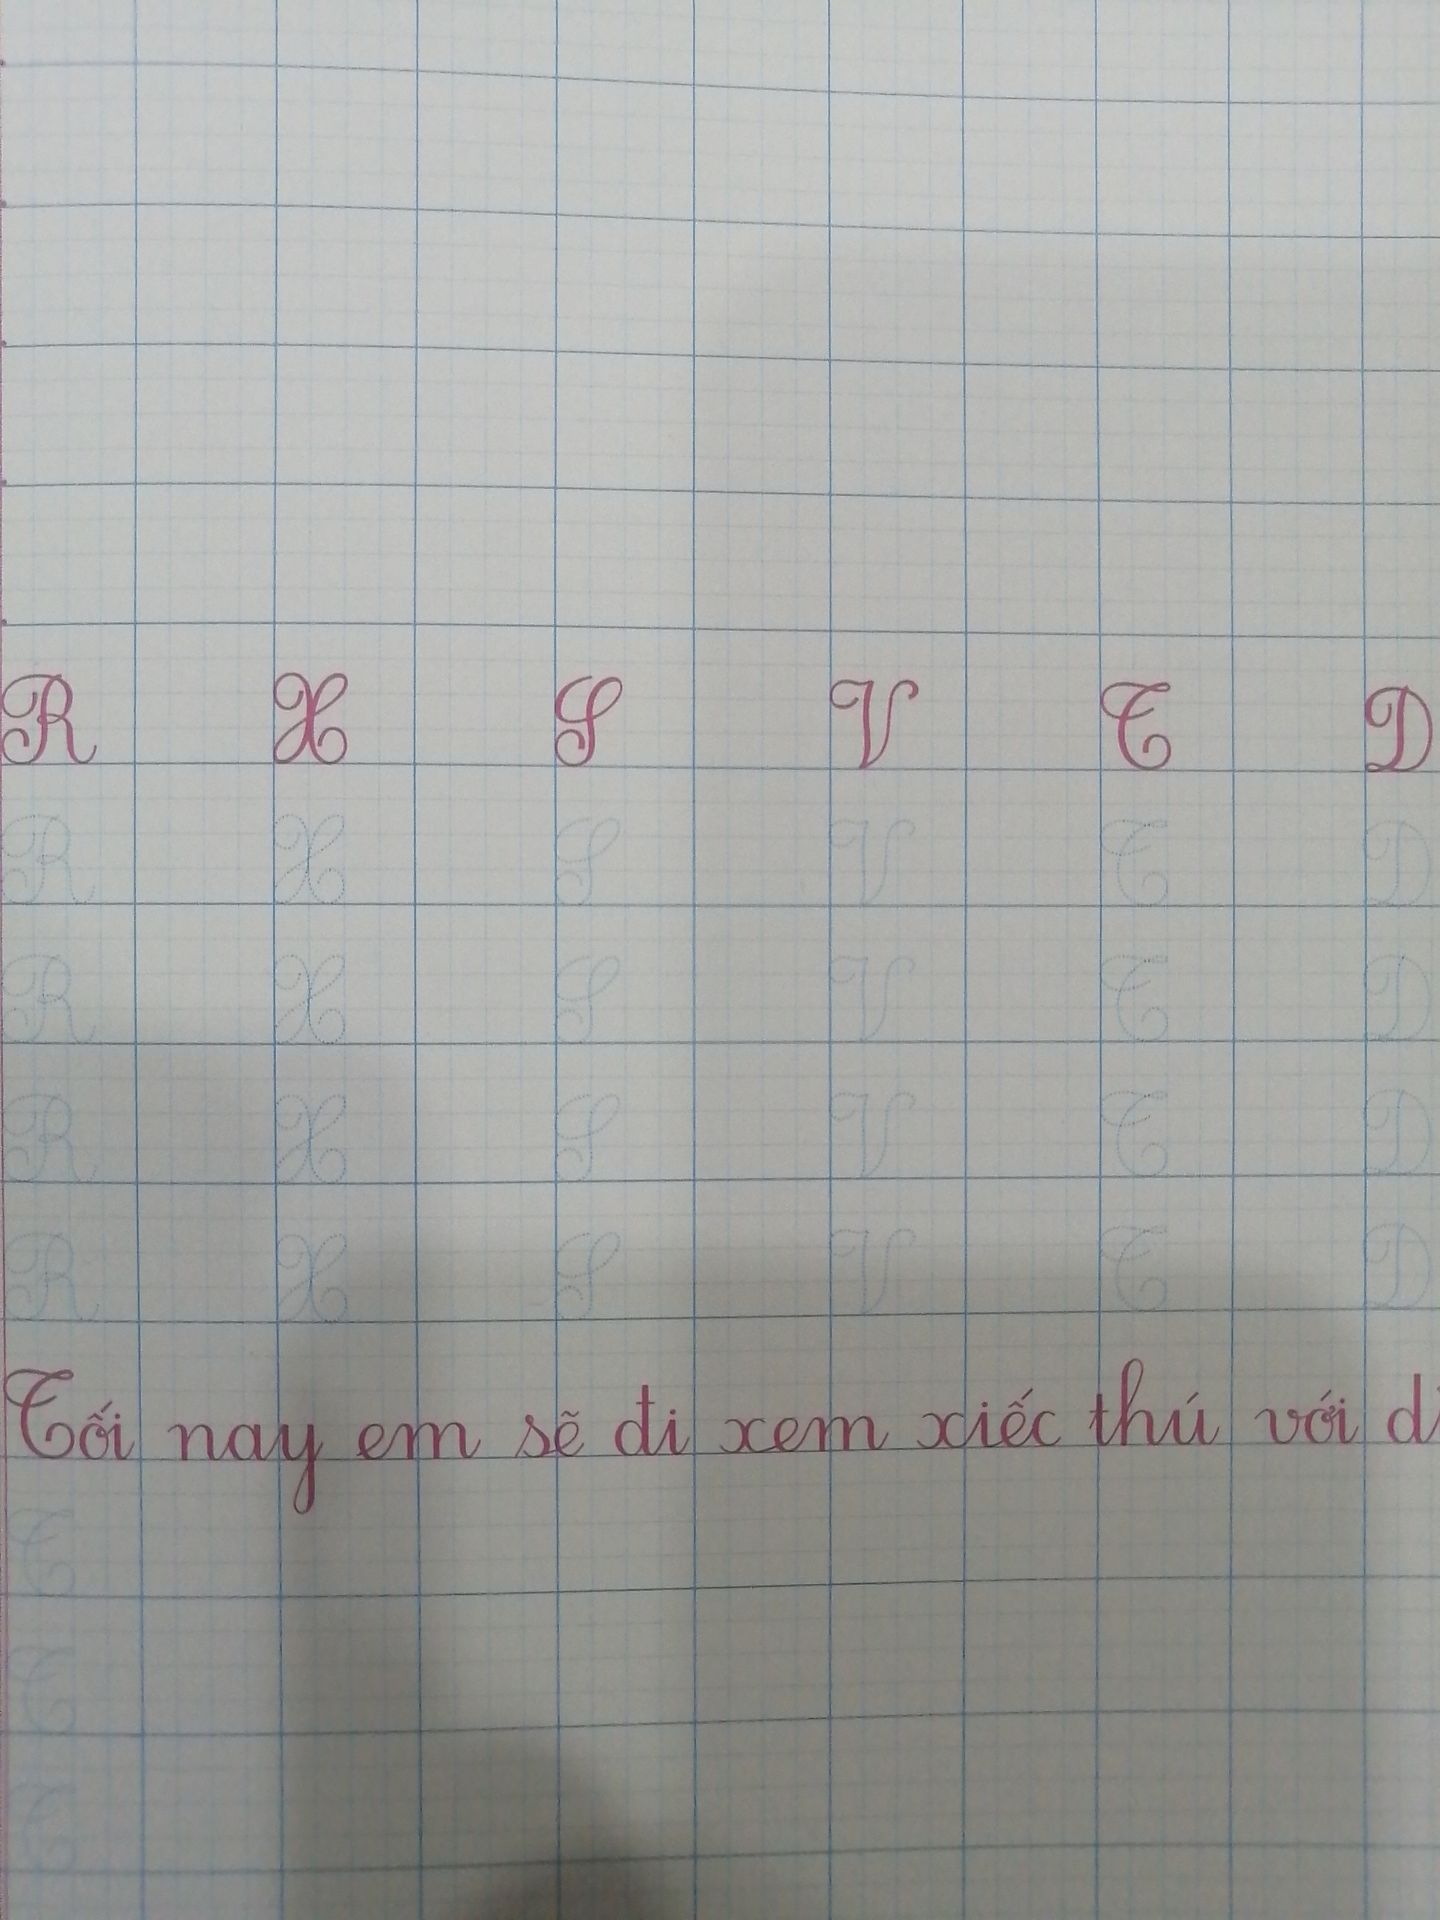 R X S V T D
R X S V T D
R X S V T D
R X S V T D
R X S V T D
Tối nay em sẽ đi xem xiếc thú với
T
T
T